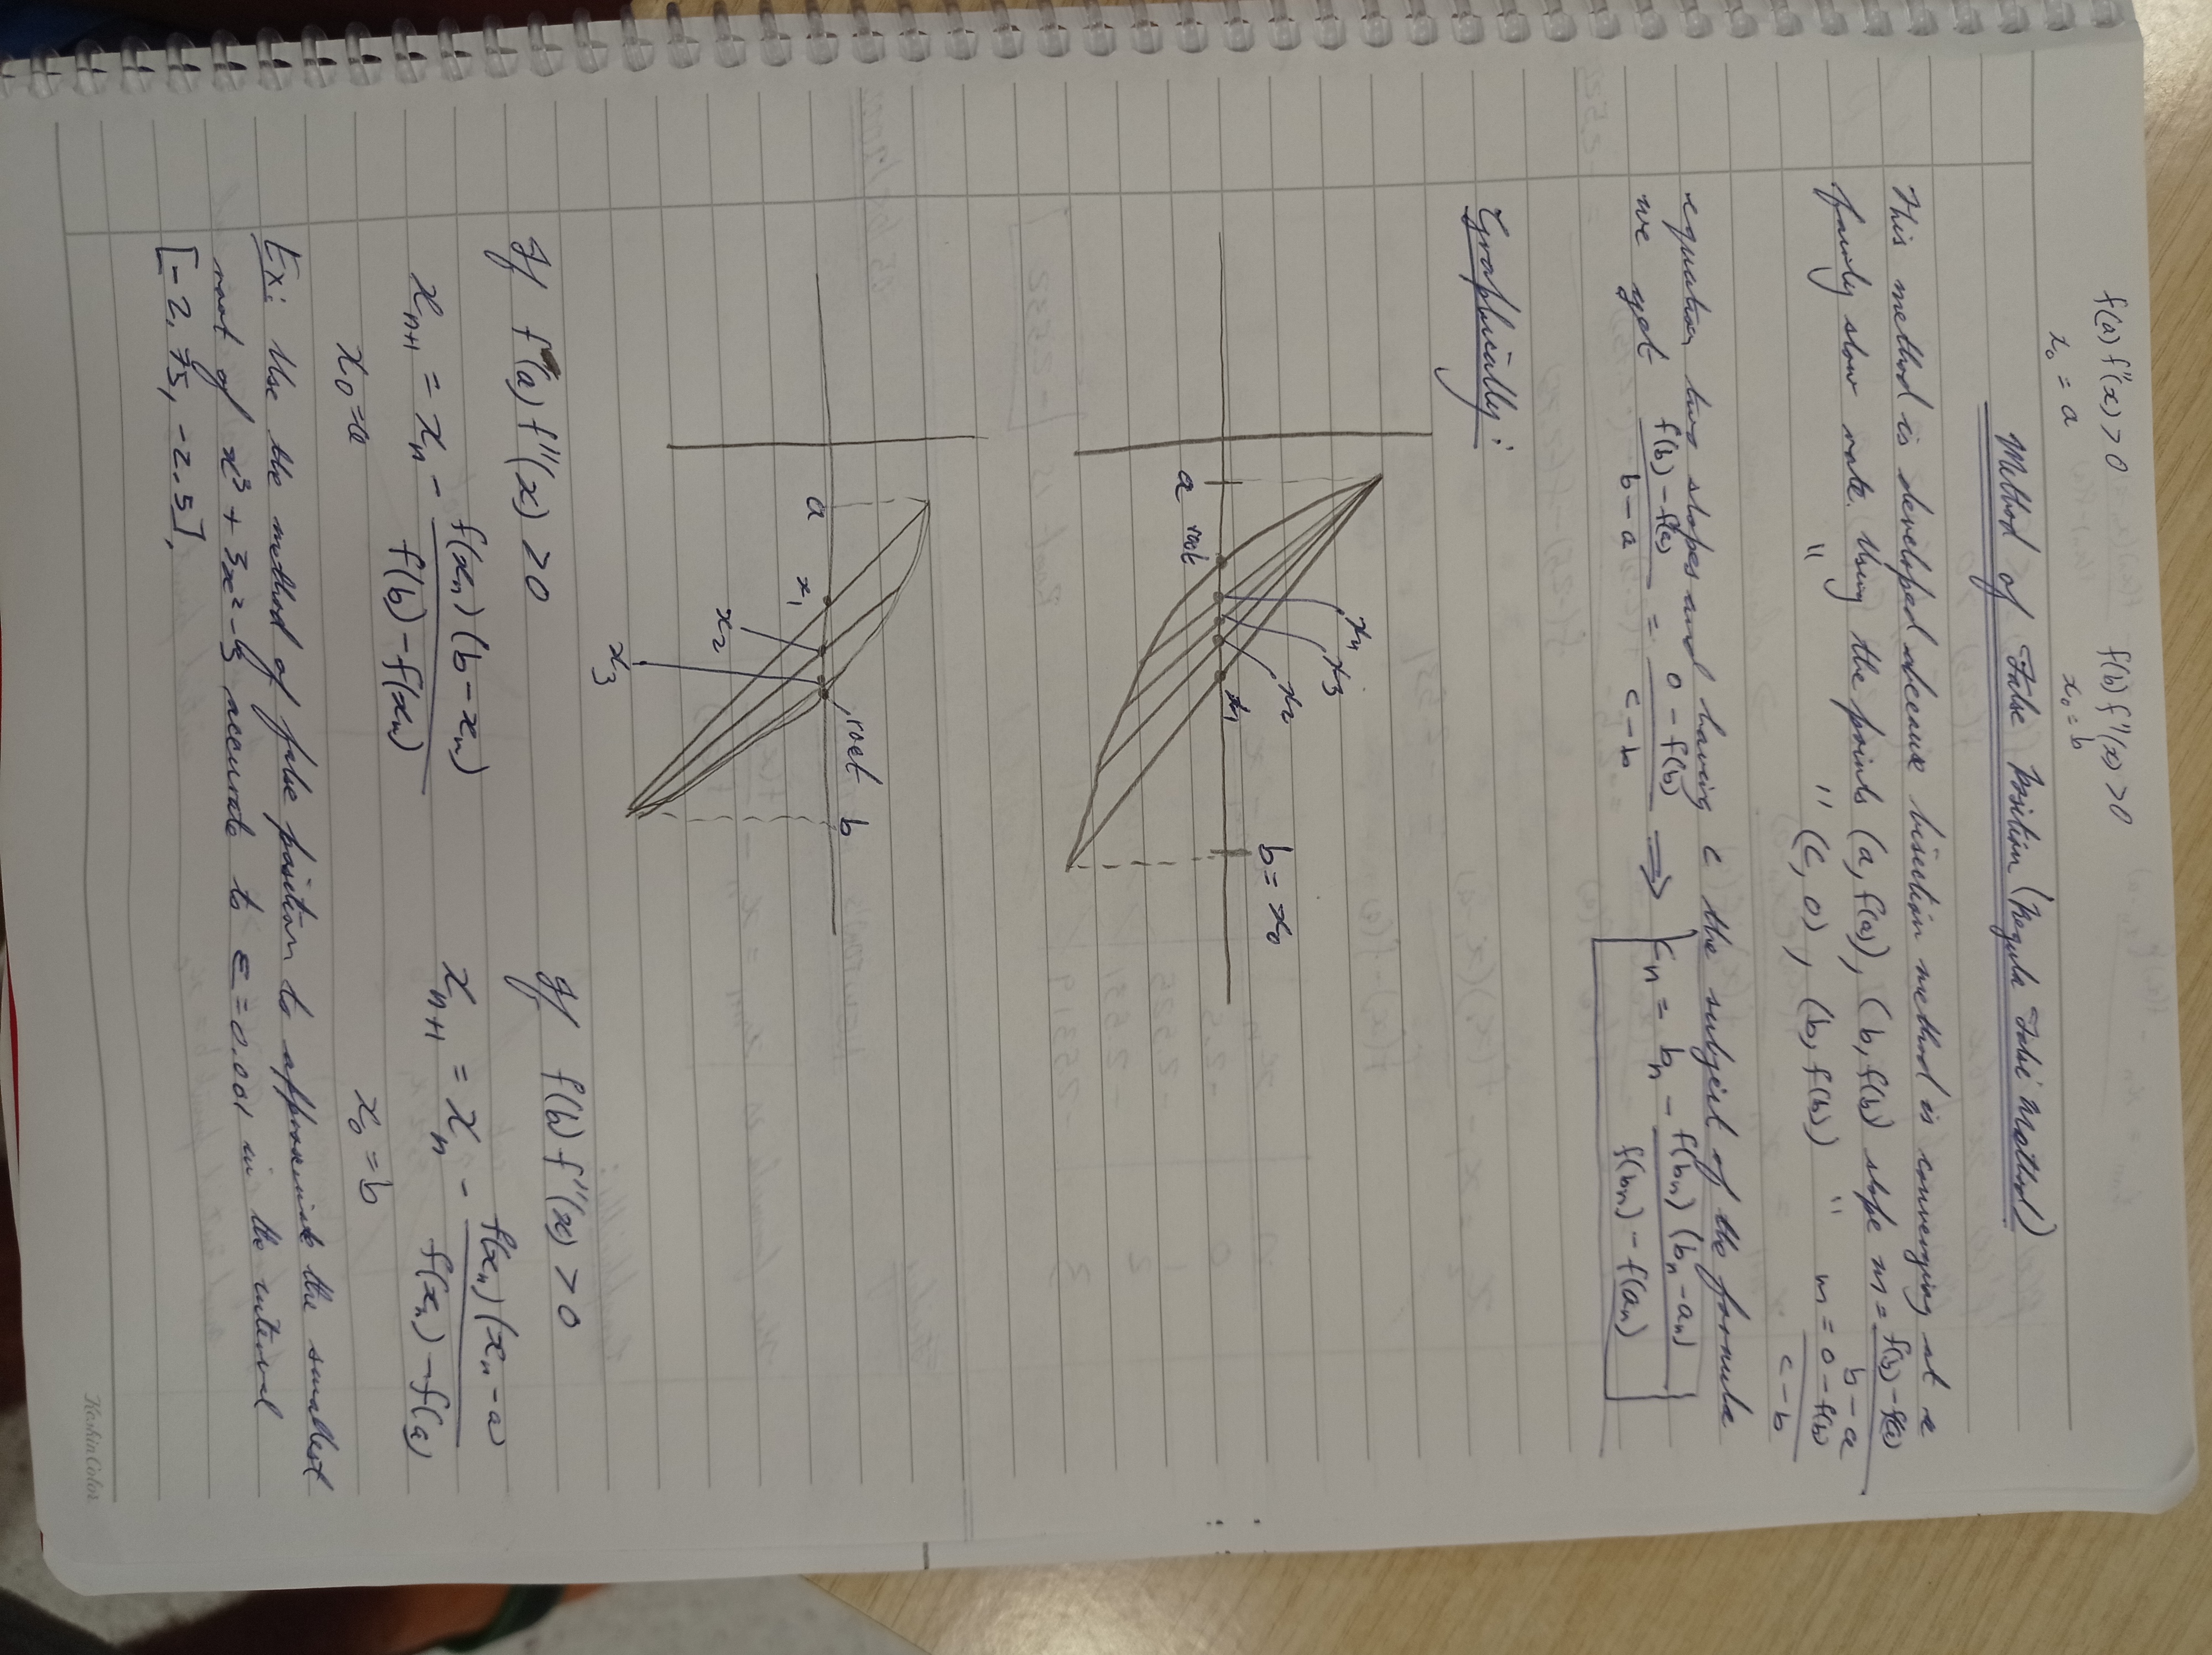 f(a) f''(x) > 0    f(b) f''(x) > 0
x₀ = a    x₀ = b
Method of False Position (Regula Falsi Method)
This method is developed because bisection method is converging at a
fairly slow rate. Using the points (a, f(a)), (b, f(b)) slope m = f(b) - f(a) / b - a
" " (c, 0), (b, f(b)) " m = 0 - f(b) / c - b
equation two slopes and having c the subject of the formula
we get f(b) - f(a) / b - a = 0 - f(b) / c - b ⟹ cₙ = bₙ - f(bₙ) (bₙ - aₙ) / f(bₙ) - f(aₙ)
Graphically:
x₄ x₃ x₂
a root x₁ b = x₀
a x₁ root b
x₂
x₃
If f(a) f''(x) > 0    If f(b) f''(x) > 0
xₙ₊₁ = xₙ - f(xₙ) (b - xₙ) / f(b) - f(xₙ)    xₙ₊₁ = xₙ - f(xₙ) (xₙ - a) / f(xₙ) - f(a)
x₀ = a    x₀ = b
Ex: Use the method of false position to approximate the smallest
root of x³ + 3x² - 3 accurate to ε = 0.001 in the interval
[-2.75, -2.5],
KashinColor